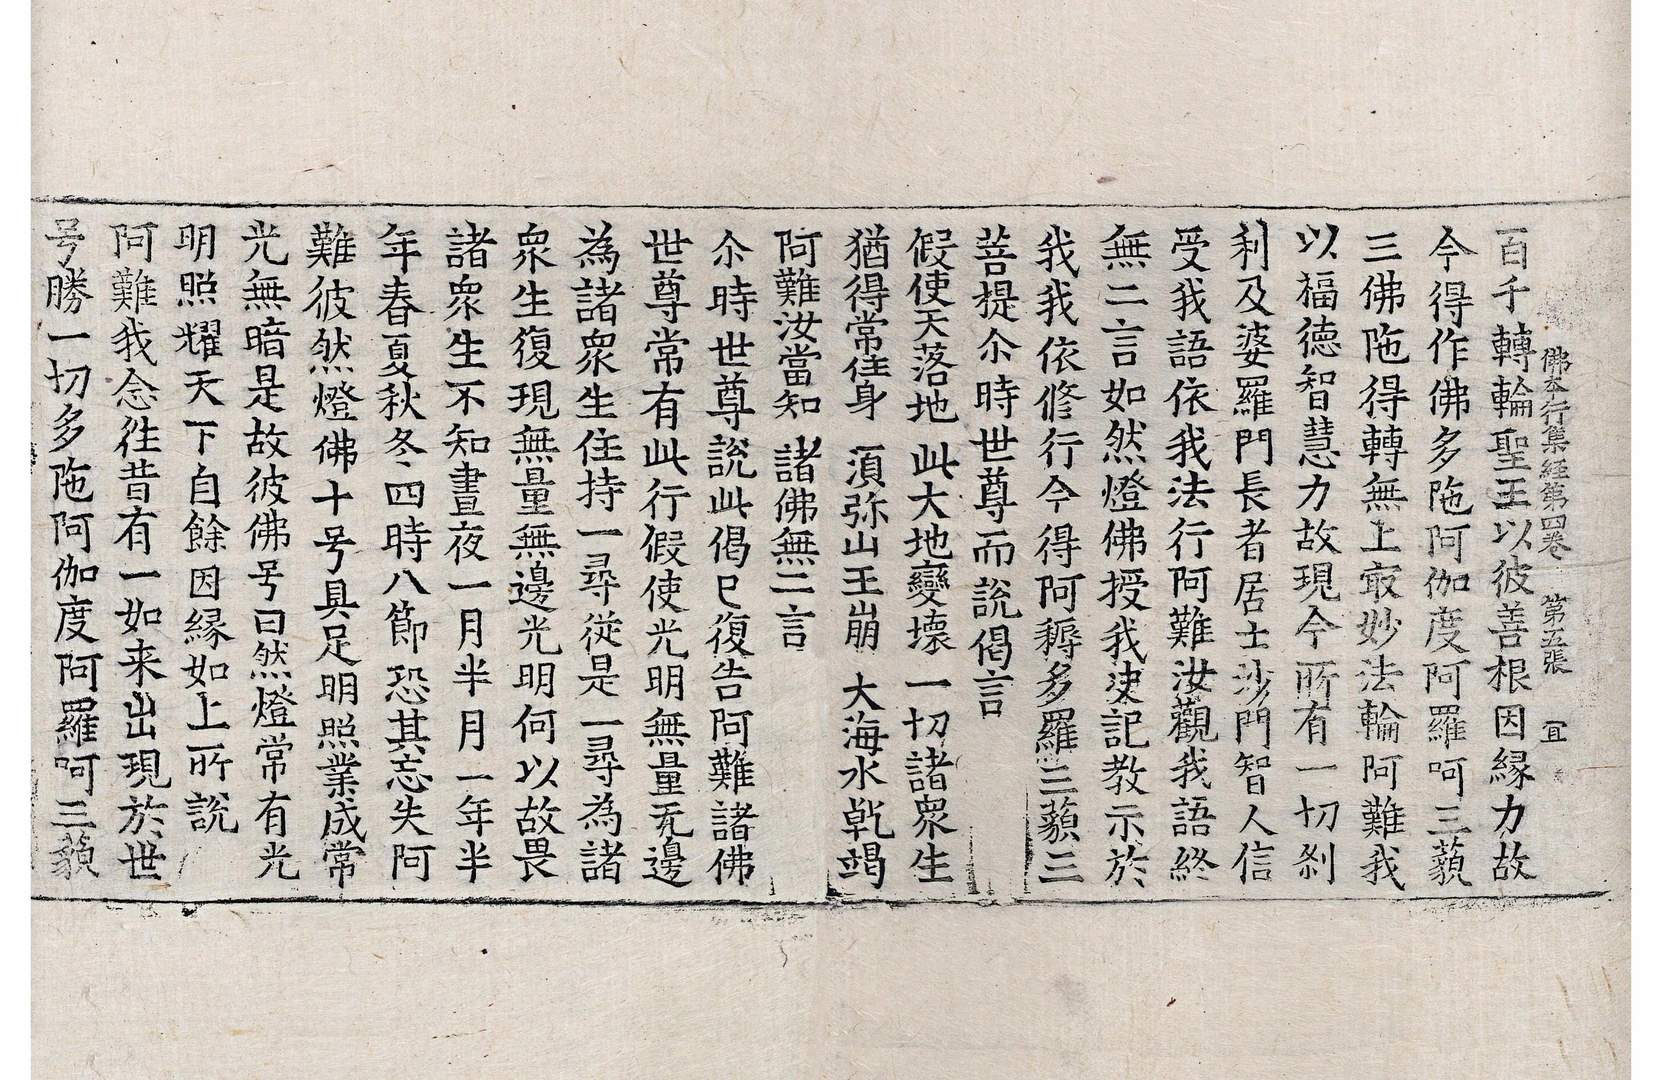 佛本行集經第四卷　第五張　宜
百千轉輪聖王以彼善根因緣力故
今得作佛多陁阿伽度阿羅呵三藐
三佛陁得轉無上最妙法輪阿難我
以福德智慧力故現今所有一切剎
利及婆羅門長者居士沙門智人信
受我語依我法行阿難汝觀我語終
無二言如然燈佛授我決記教示於
我我依修行今得阿耨多羅三藐三
菩提尒時世尊而說偈言
假使天落地　此大地變壞　一切諸衆生
猶得常住身　須弥山王崩　大海水乹竭
阿難汝當知　諸佛無二言
尒時世尊說此偈已復告阿難諸佛
世尊常有此行假使光明無量无邊
為諸衆生住持一尋從是一尋為諸
衆生復現無量無邊光明何以故畏
諸衆生不知晝夜一月半月一年半
年春夏秋冬四時八節恐其忘失阿
難彼然燈佛十号具足明照業成常
光無暗是故彼佛号曰然燈常有光
明照耀天下自餘因緣如上所說
阿難我念徃昔有一如来出現於世
号勝一切多陁阿伽度阿羅呵三藐